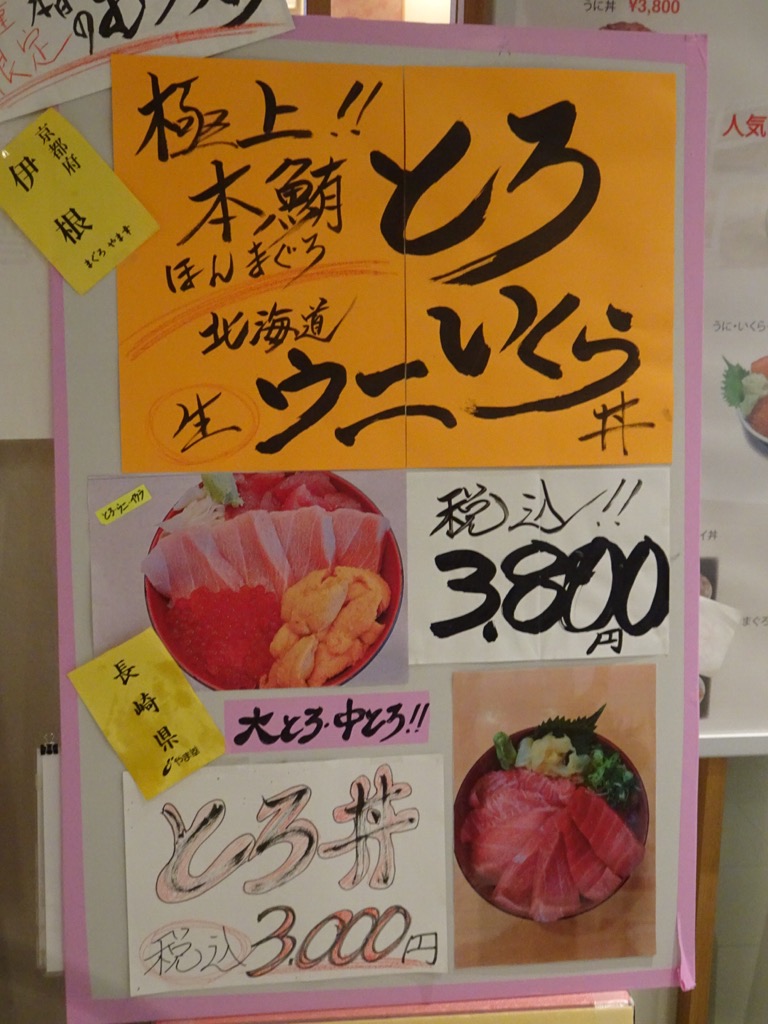 うに丼 ¥3,800
人気
京都府
伊根
まぐろやま幸
極上!!
本鮪
ほんまぐろ
北海道
生 ウニ
とろ
いくら
丼
うに・いくら
とろ・ウニ・イクラ
税込!!
3,800
円
イ丼
まぐろ
長崎県
やま幸
大とろ・中とろ!!
とろ丼
税込 3,000円